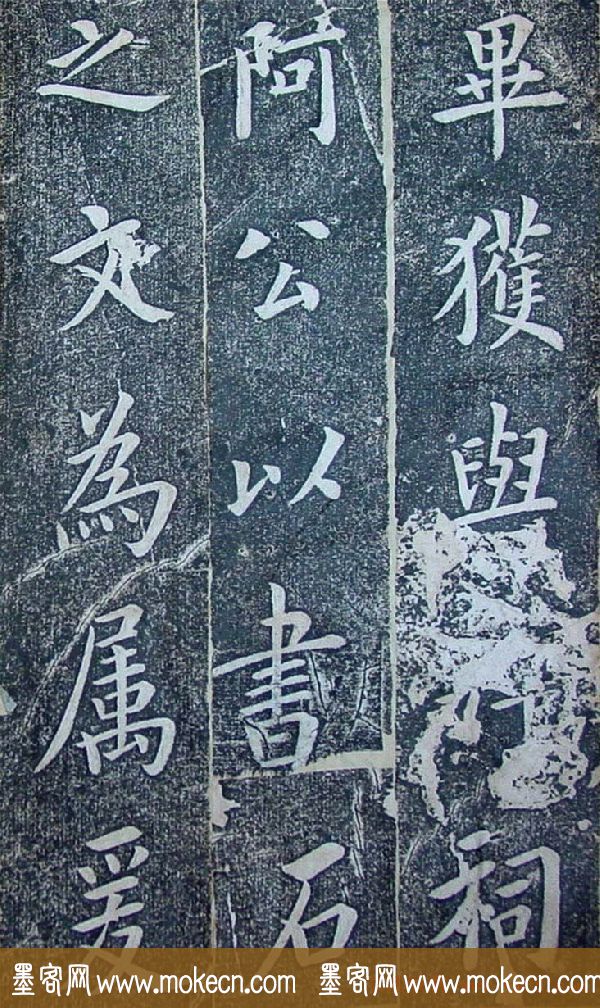 畢獲與祠
阿公以書石
之文為属爰
墨客网 www.mokecn.com 墨客网 www.mokecn.com